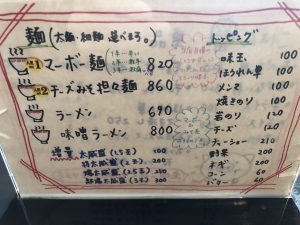 麺(太麺・細麺 選べます。)
トッピング
1 マーボー麺 820
2 チーズみそ担々麺 860
ラーメン 690
味噌ラーメン 800
増量 大盛 (1.5玉) 100
特大盛 (2玉) 200
(2.5玉) 250
(3玉) 300
味玉 100
ほうれん草 100
メンマ 100
焼きのり 100
岩のり 120
チーズ 120
チャーシュー 210
野菜 200
ネギ 200
コーン 60
バター 60